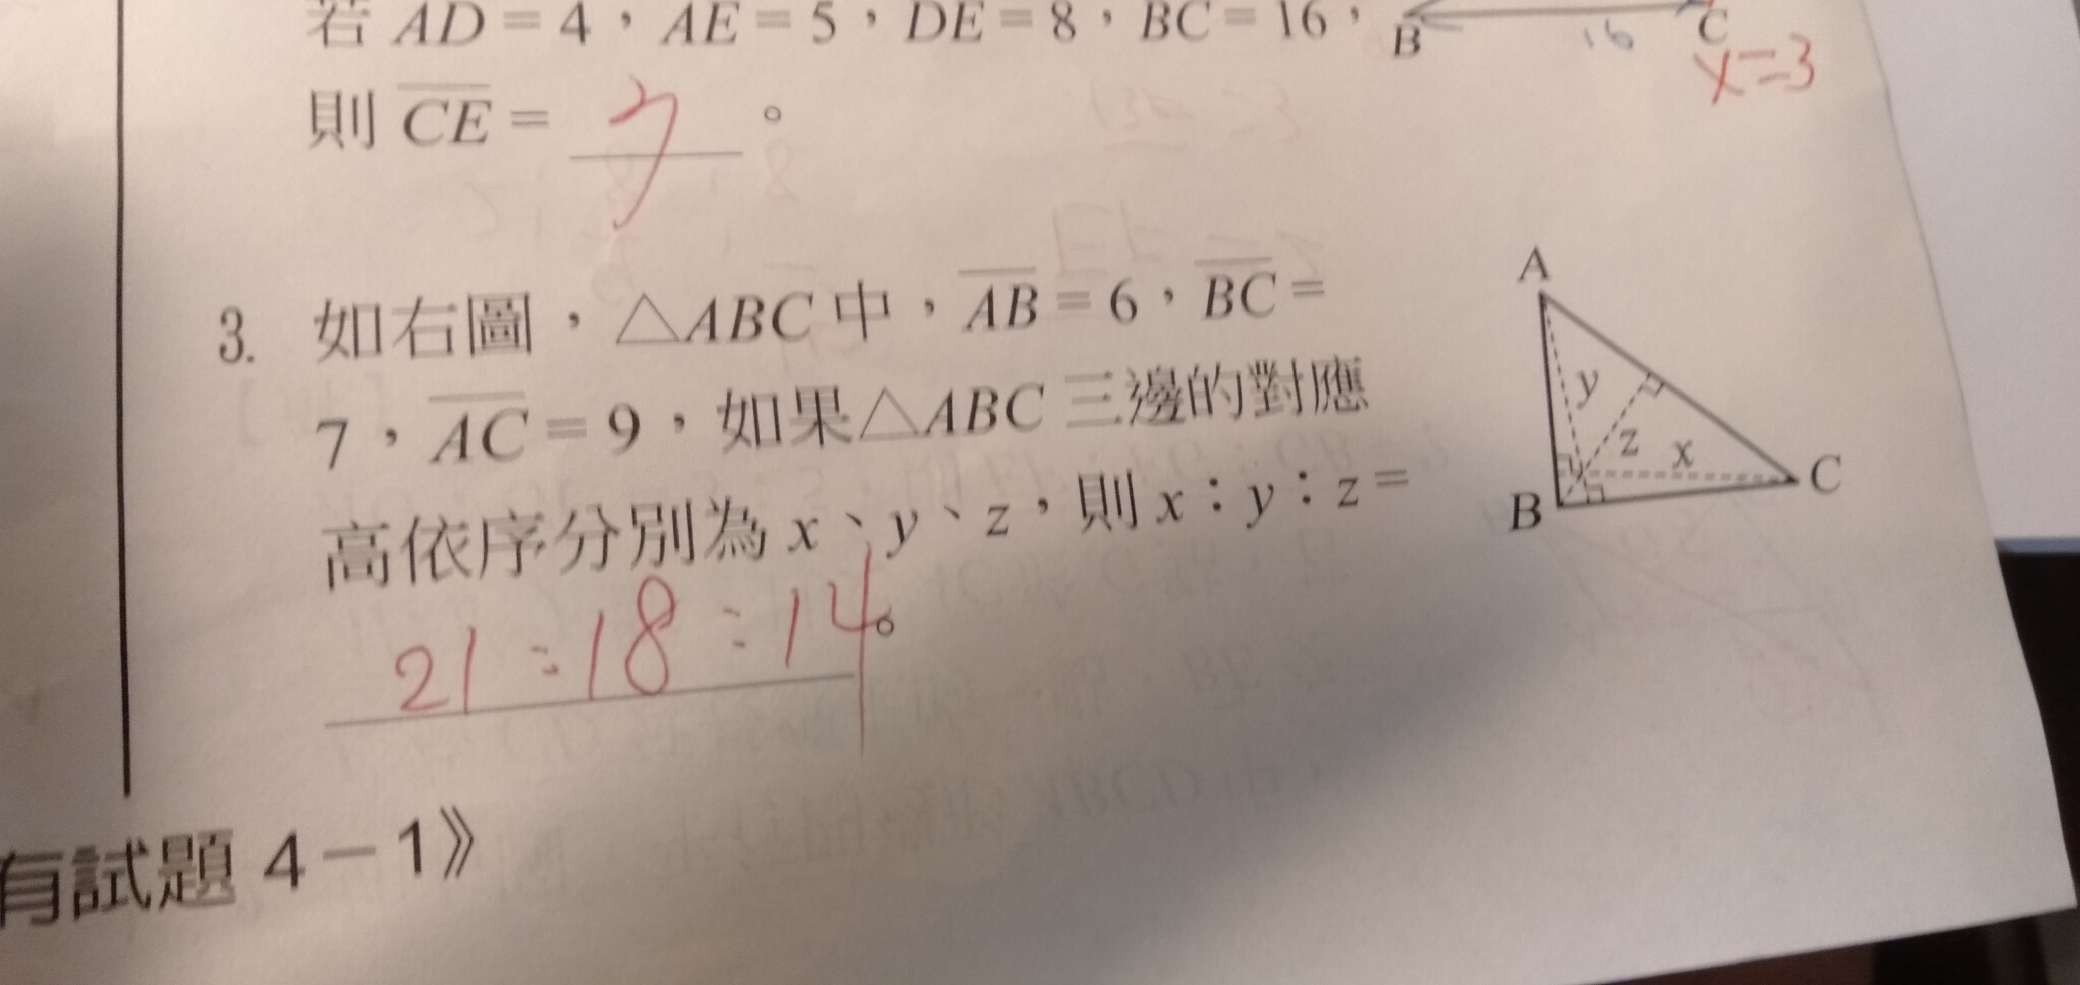 若 AD = 4，AE = 5，DE = 8，BC = 16，
B 16 C
x=3
則 CE = 7 。
3. 如右圖，△ABC 中，AB = 6，BC =
7，AC = 9，如果△ABC 三邊的對應
高依序分別為 x、y、z，則 x：y：z =
21 : 18 : 14。
A
y
z x
B C
有試題 4－1》